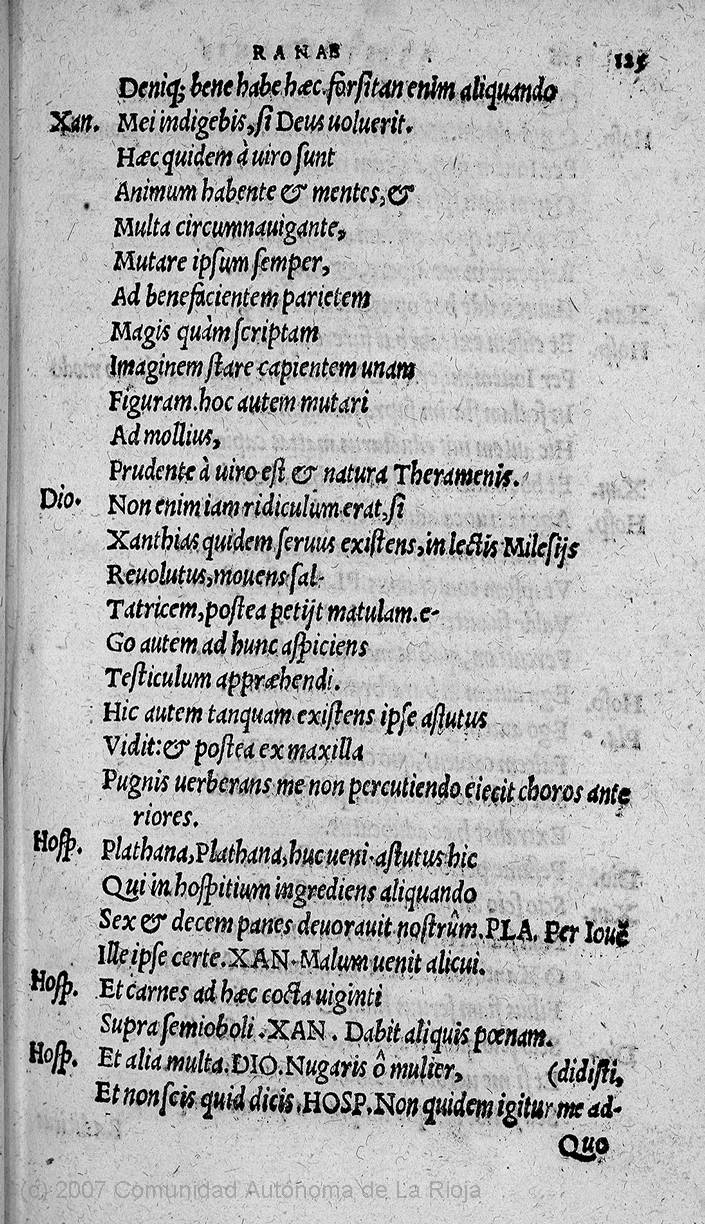 RANAE 125
Deniq; bene habe hæc. forsitan enim aliquando
Xan. Mei indigebis, si Deus uoluerit.
Hæc quidem à uiro sunt
Animum habente & mentes, &
Multa circumnauigante,
Mutare ipsum semper,
Ad benefacientem parietem
Magis quàm scriptam
Imaginem stare capientem unam
Figuram. hoc autem mutari
Ad mollius,
Prudente à uiro est & natura Theramenis.
Dio. Non enim iam ridiculum erat, si
Xanthias quidem seruus existens, in lectis Milesijs
Reuolutus, mouens sal-
Tatricem, postea petijt matulam. e-
Go autem ad hunc aspiciens
Testiculum appræhendi.
Hic autem tanquam existens ipse astutus
Vidit: & postea ex maxilla
Pugnis uerberans me non percutiendo eiecit choros ante
riores.
Hosp. Plathana, Plathana, huc ueni. astutus hic
Qui in hospitium ingrediens aliquando
Sex & decem panes deuorauit nostrûm. PLA. Per Iouē
Ille ipse certe. XAN. Malum uenit alicui.
Hosp. Et carnes ad hæc cocta uiginti
Supra semioboli. XAN. Dabit aliquis pœnam.
Hosp. Et alia multa. DIO. Nugaris ô mulier, (didisti,
Et non scis quid dicis. HOSP. Non quidem igitur me ad-
Quo
(c) 2007 Comunidad Autónoma de La Rioja